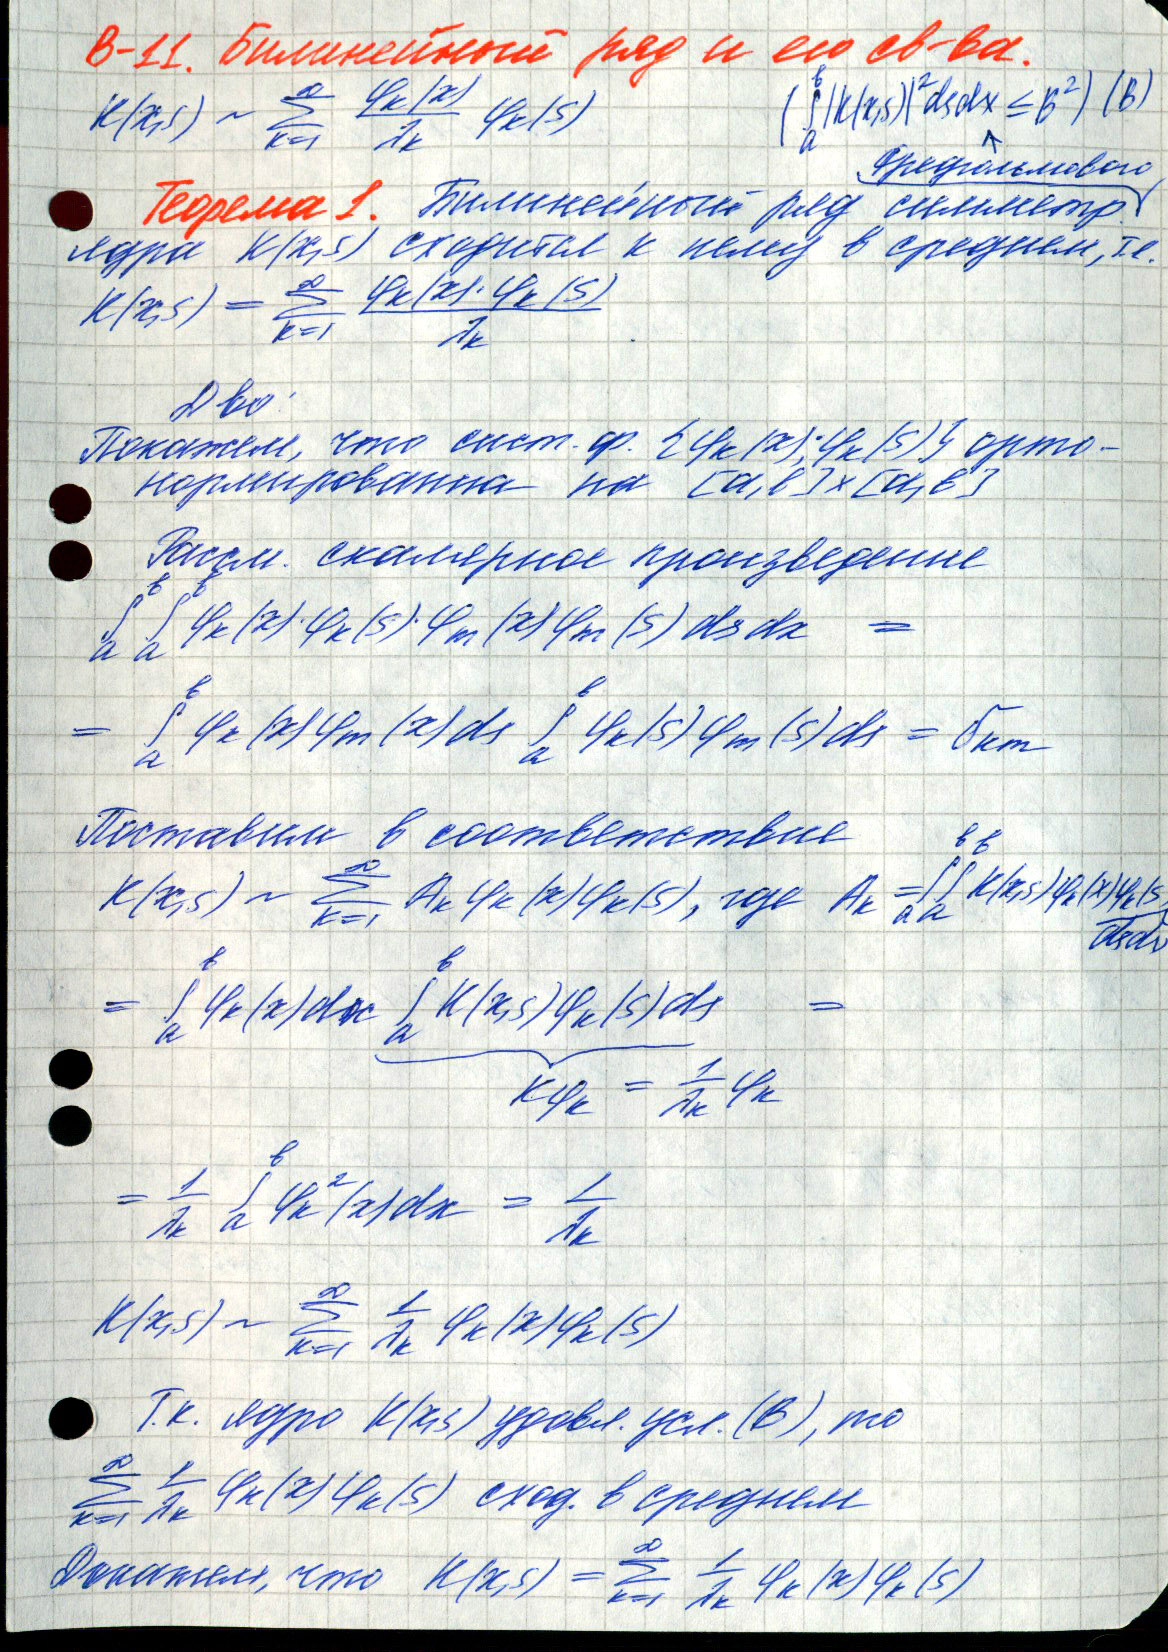 В-11. Билинейный ряд и его св-ва.
K(x,s) ~ ∑_{k=1}^∞ φ_k(x)/λ_k φ_k(s)   (∫_a^b |K(x,s)|² ds dx ≤ B²) (В)
Фредгольмового
Теорема 1. Билинейный ряд симметр.
ядра K(x,s) сходится к нему в среднем, т.е.
K(x,s) = ∑_{k=1}^∞ φ_k(x)·φ_k(s)/λ_k
Д-во:
Покажем, что сист. ф. {φ_k(x)·φ_k(s)} орто-
нормированна на [a,b]×[a,b]
Рассм. скалярное произведение
∫_a^b ∫_a^b φ_k(x)·φ_k(s)·φ_m(x)φ_m(s) ds dx =
= ∫_a^b φ_k(x)φ_m(x)ds ∫_a^b φ_k(s)φ_m(s)ds = δ_km
Поставим в соответствие
K(x,s) ~ ∑_{k=1}^∞ A_k φ_k(x)φ_k(s), где A_k = ∫_a^b ∫_a^b K(x,s)φ_k(x)φ_k(s
dsdx
= ∫_a^b φ_k(x)dx ∫_a^b K(x,s)φ_k(s)ds =
Kφ_k = 1/λ_k φ_k
= 1/λ_k ∫_a^b φ_k²(x)dx = 1/λ_k
K(x,s) ~ ∑_{k=1}^∞ 1/λ_k φ_k(x)φ_k(s)
Т.к. ядро K(x,s) удовл. усл. (В), то
∑_{k=1}^∞ 1/λ_k φ_k(x)φ_k(s) сход. в среднем
Докажем, что K(x,s) = ∑_{k=1}^∞ 1/λ_k φ_k(x)φ_k(s)